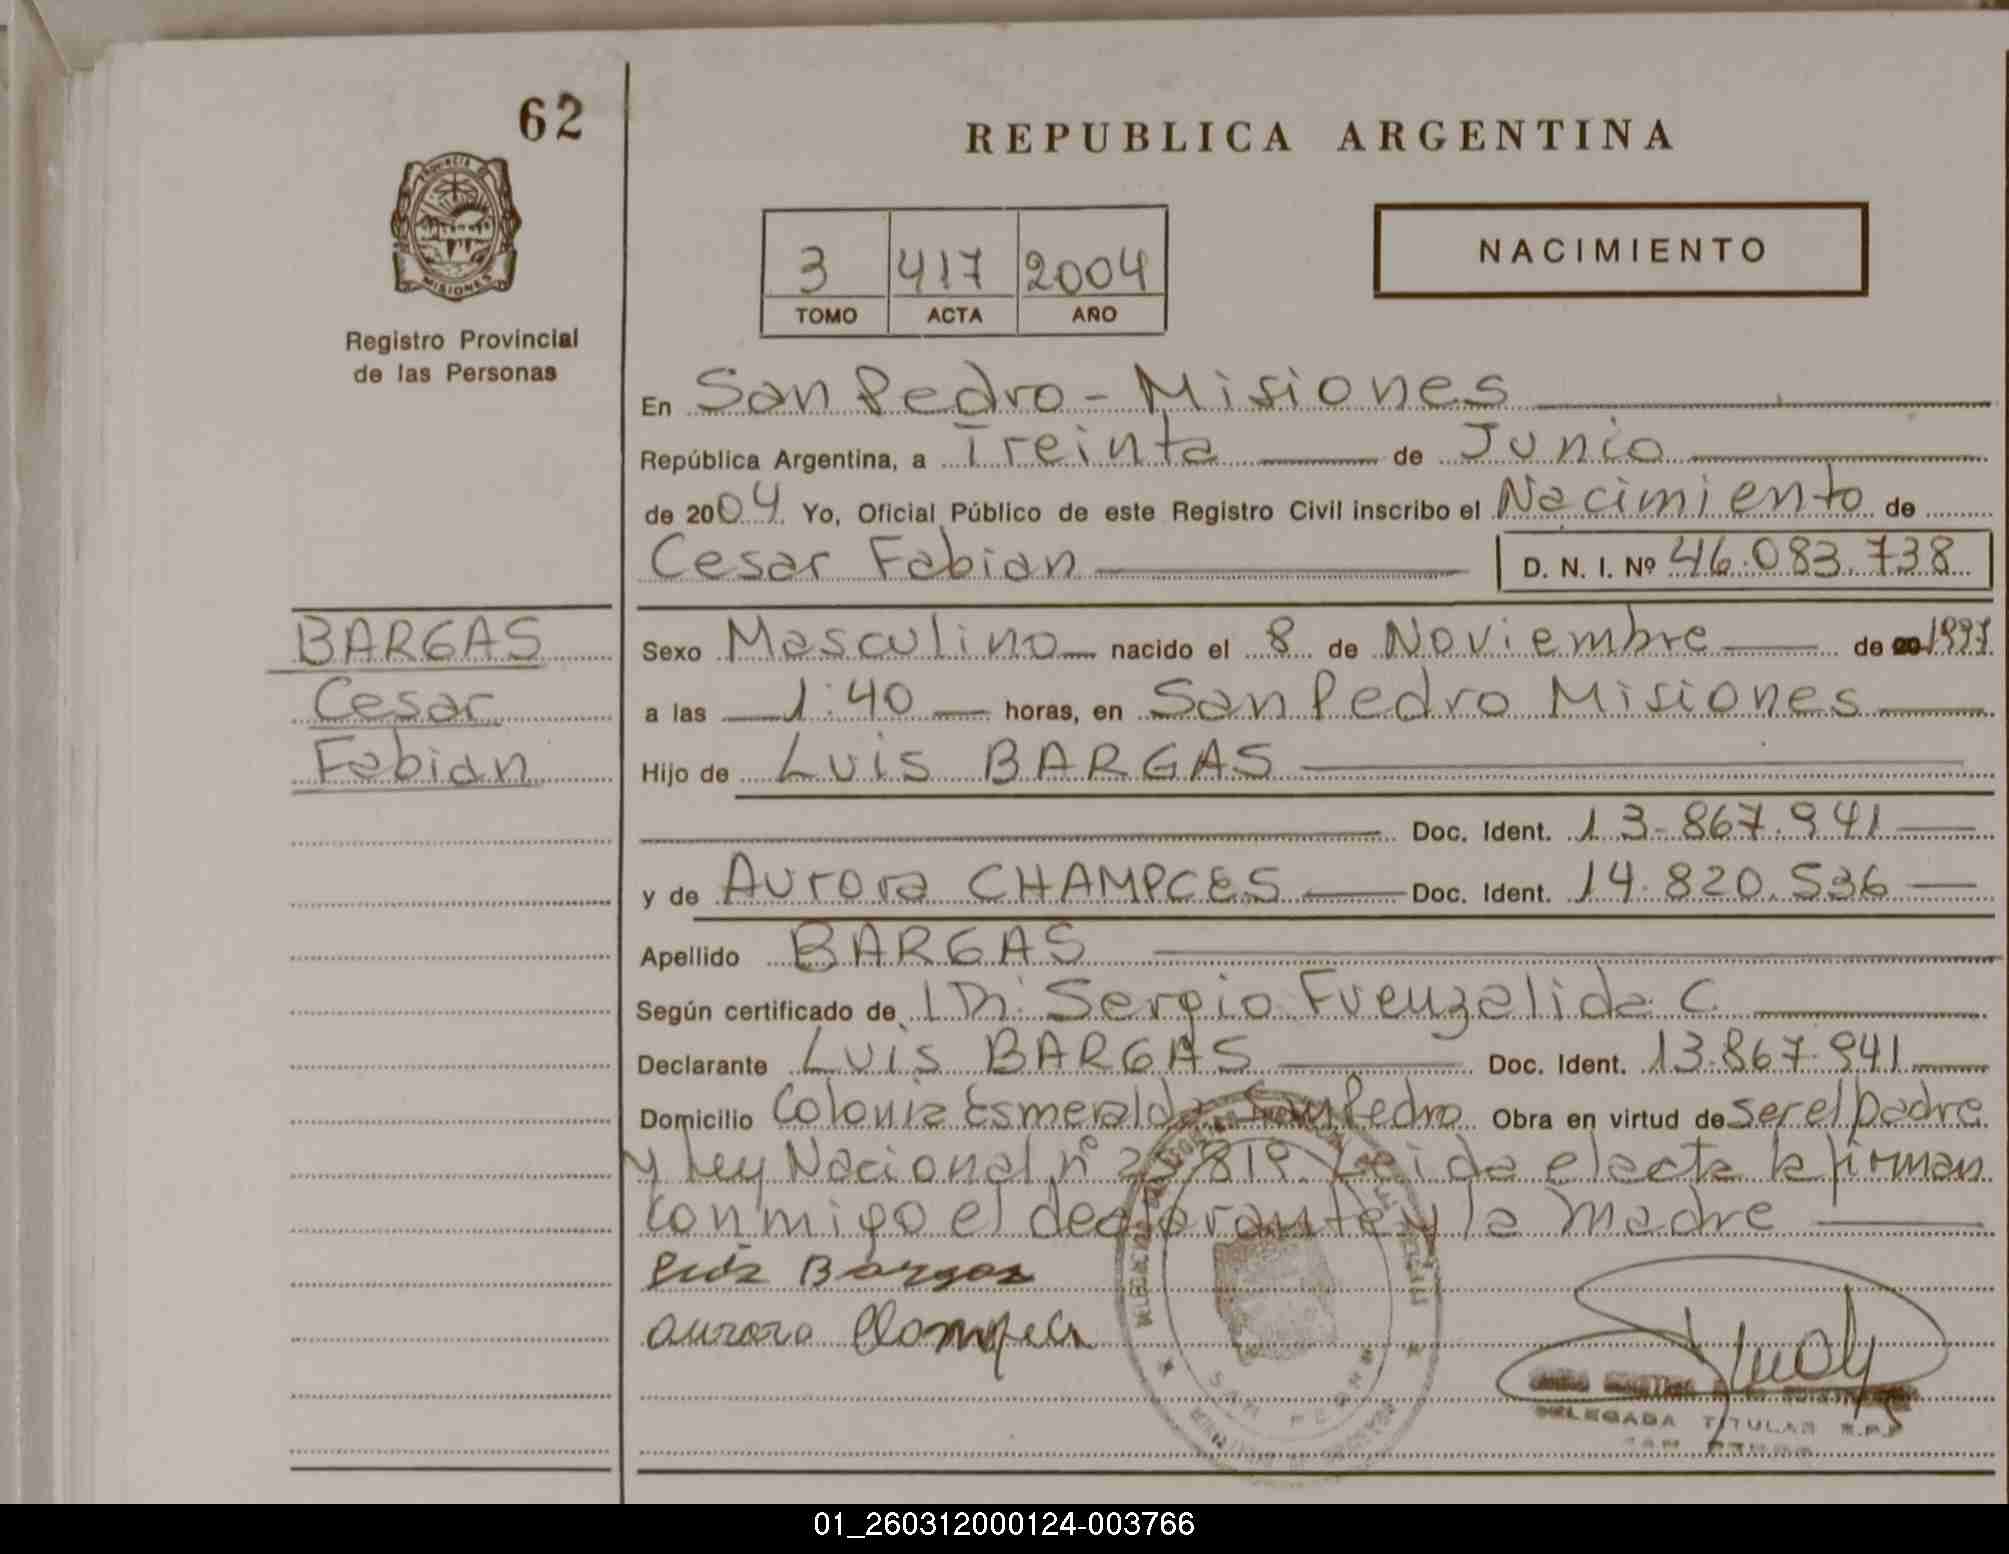 62
REPUBLICA ARGENTINA
PROVINCIA DE
MISIONES
Registro Provincial
de las Personas
3 417 2004
TOMO ACTA AÑO
NACIMIENTO
En San Pedro - Misiones
República Argentina, a Treinta de Junio
de 2004 Yo, Oficial Público de este Registro Civil inscribo el Nacimiento de
Cesar Fabian D. N. I. Nº 46.083.738
BARGAS
Cesar
Fabian
Sexo Masculino nacido el 8 de Noviembre de 1997
a las 1:40 horas, en San Pedro Misiones
Hijo de Luis BARGAS
Doc. Ident. 13.867.941
y de Aurora CHAMPCES Doc. Ident. 14.820.536
Apellido BARGAS
Según certificado de Dr. Sergio Fuenzalida C.
Declarante Luis BARGAS Doc. Ident. 13.867.941
Domicilio Colonia Esmeralda San Pedro Obra en virtud de ser el padre
y Ley Nacional nº 25.819. Leida el acta la firman
conmigo el declarante y la madre
Luis Bargas
Aurora
SAN PEDRO
DELEGADA TITULAR R.P.P
SAN PEDRO
01_260312000124-003766